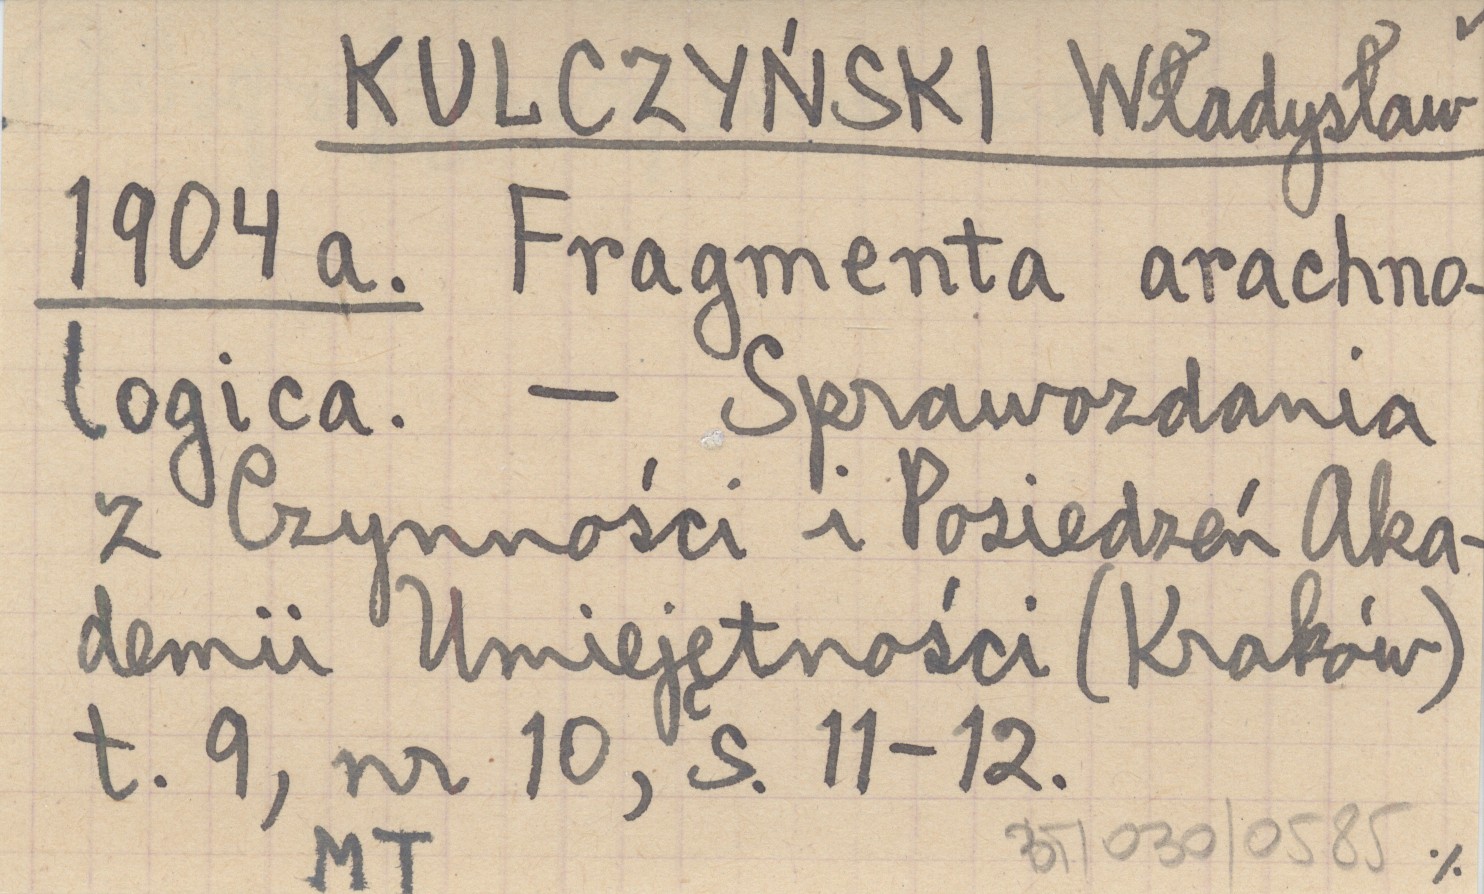 KULCZYŃSKI Władysław
1904 a. Fragmenta arachno-
logica. — Sprawozdania
z Czynności i Posiedzeń Aka-
demii Umiejętności (Kraków)
t. 9, nr 10, s. 11-12.
MT
35/030/0585 ./.